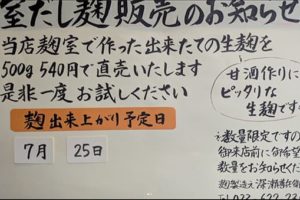 室だし麹販売のお知らせ
当店麹室で作った出来たての生麹を
500g 540円で直売いたします
是非一度お試しください
甘酒作りに
ピッタリな
生麹です
麹出来上がり予定日
7月 25日
数量限定ですの
御来店前に御希望
数量をお知らせくだ
麹製造元